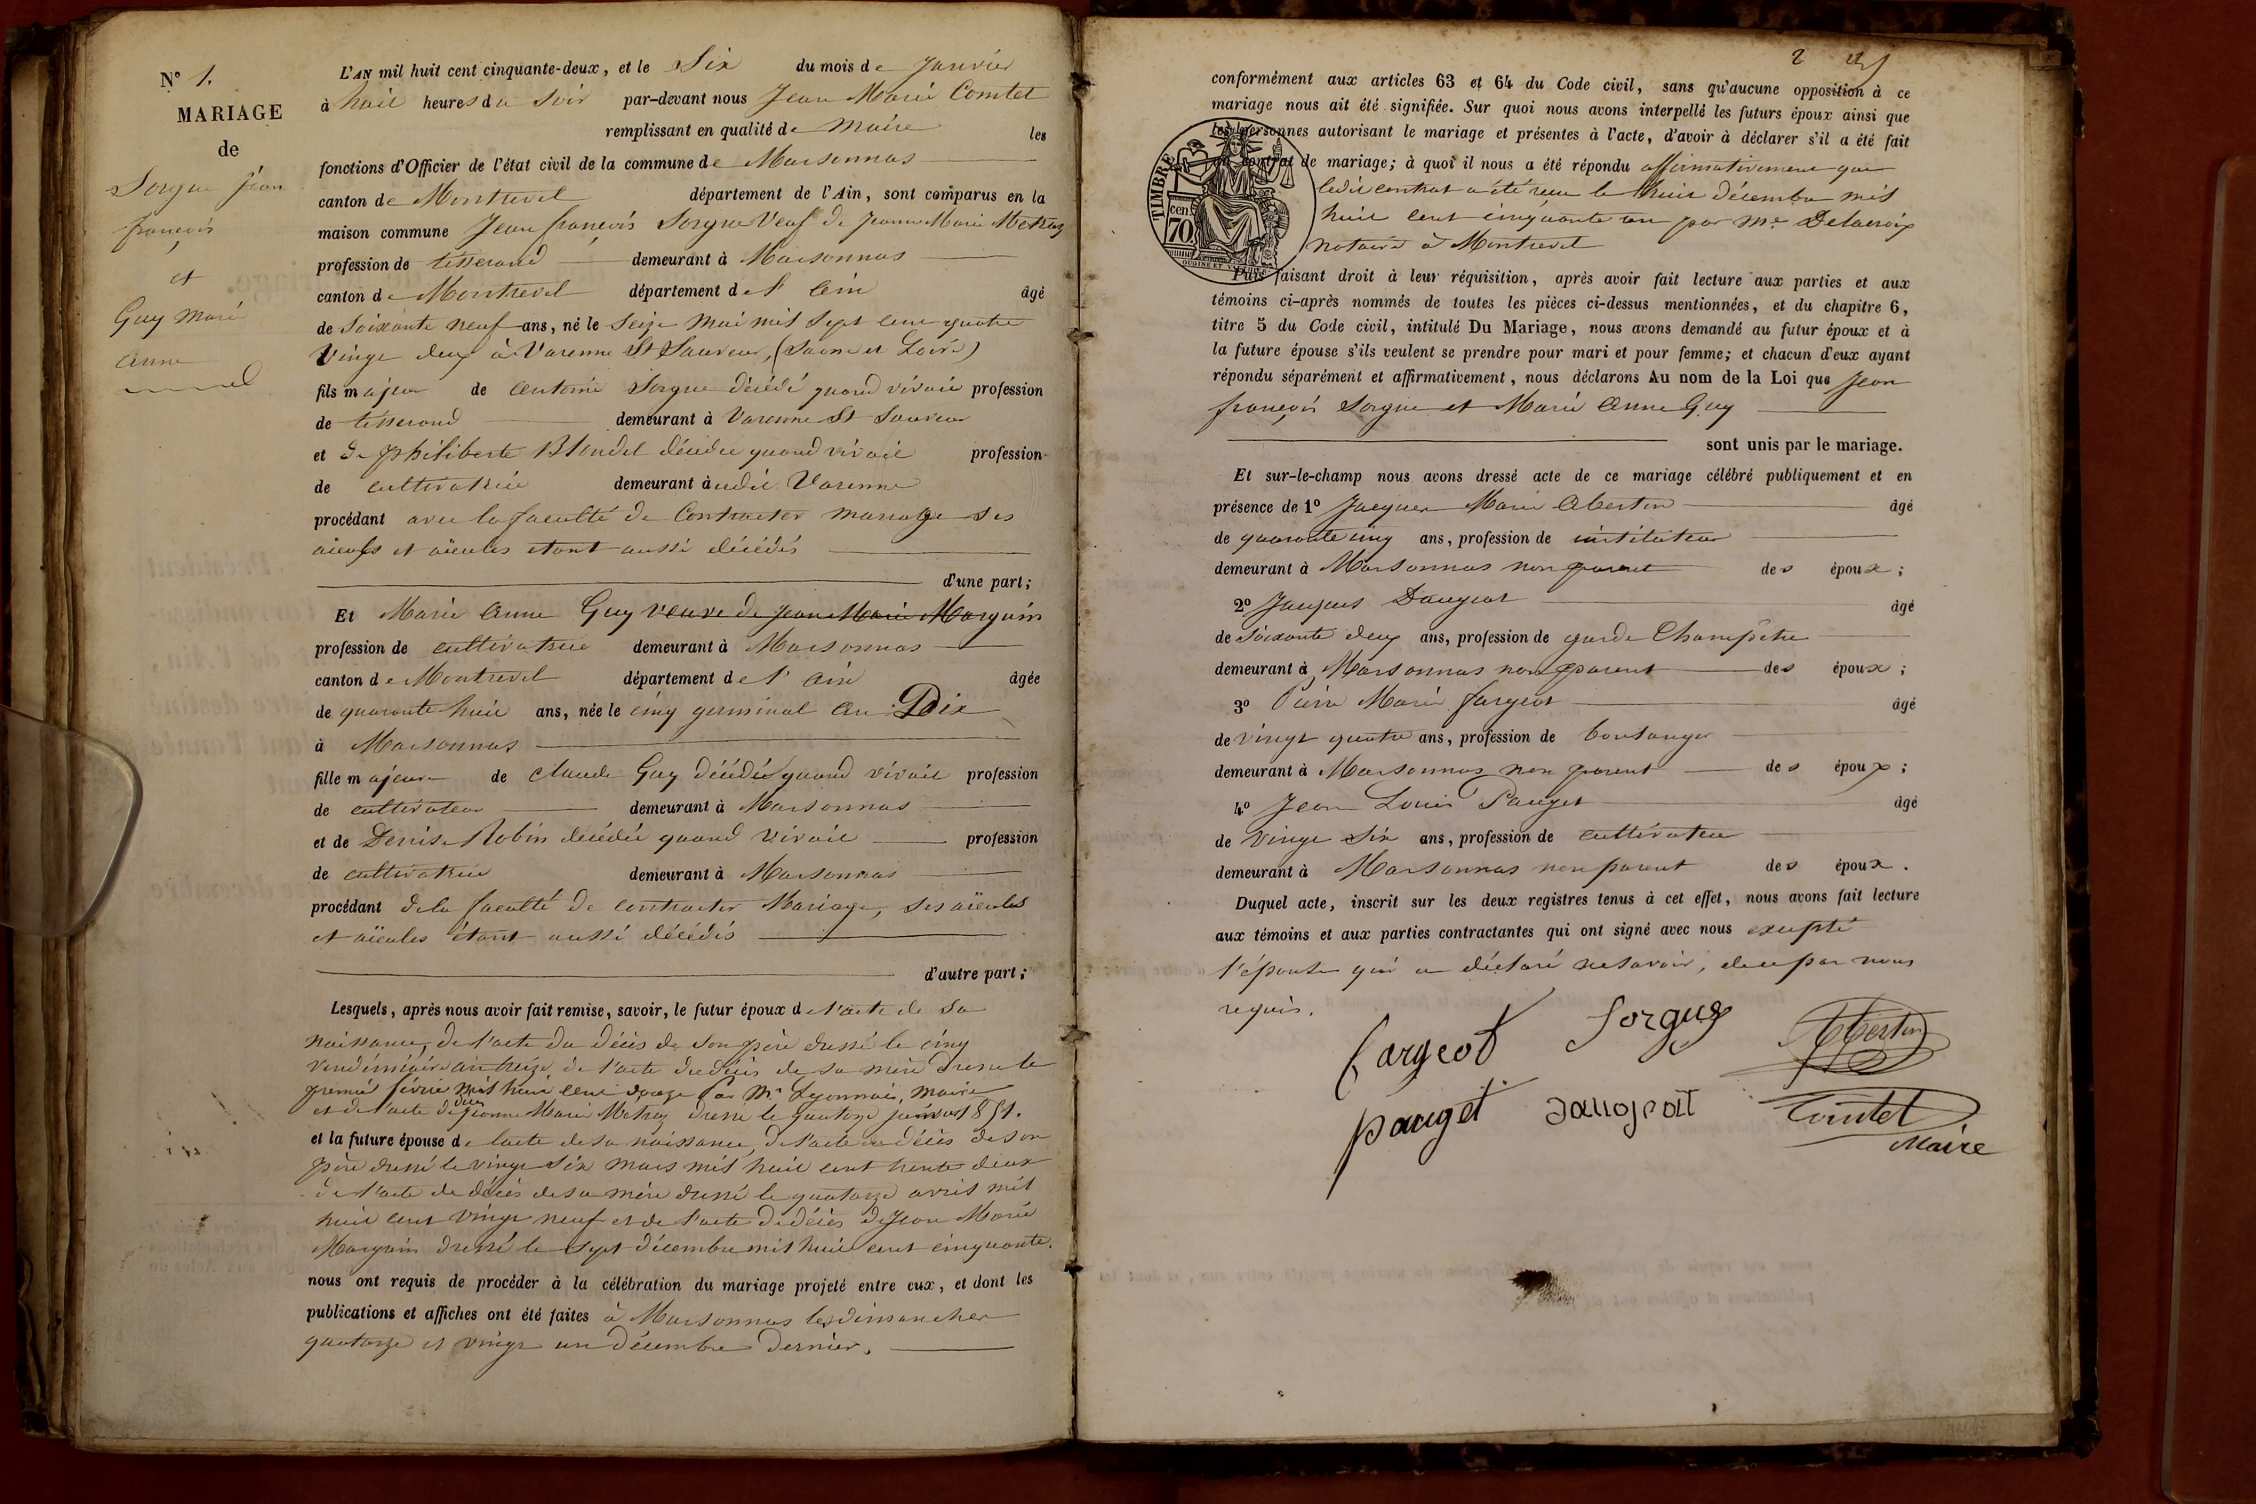 N° 1.
MARIAGE
de
Sorgue Jean
françois
et
Guy Marie
anne
L'AN mil huit cent cinquante-deux, et le Six du mois de Janvier
à huit heures du Soir par-devant nous Jean Marie Comtet
remplissant en qualité de Maire les
fonctions d'Officier de l'état civil de la commune de Marsonnas
canton de Montrevel département de l'Ain, sont comparus en la
maison commune Jean françois Sorgue Veuf de Jeanne Marie Metraz
profession de tisserand demeurant à Marsonnas
canton de Montrevel département de l'ain âgé
de soixante neuf ans, né le seize mai mil sept cent quatre
vingt deux à Varenne St Sauveur, (Saone et Loire)
fils majeur de antoine Sorgue décédé quand vivait profession
de tisserand demeurant à Varenne St Sauveur
et de philiberte Blondel décédée quand vivait profession
de cultivatrice demeurant à udit Varenne
procédant avec la faculté de Contracter mariage ses
aieuls et aïeules étant aussi décédés
d'une part;
Et Marie anne Guy veuve de Jean Marie Marguin
profession de cultivatrice demeurant à Marsonnas
canton de Montrevel département de l'ain âgée
de quarante huit ans, née le cinq germinal an Dix
à Marsonnas
fille majeure de claude Guy décédé quand vivait profession
de cultivateur demeurant à Marsonnas
et de Denise Robin décédée quand vivait profession
de cultivatrice demeurant à Marsonnas
procédant de la faculté de contracter Mariage, ses aïeuls
et aïeules étant aussi décédés
d'autre part;
Lesquels, après nous avoir fait remise, savoir, le futur époux de l'acte de sa
naissance, de l'acte du décès de son père dressé le cinq
vendémiaire an treize, de l'acte du décès de sa mère dressé le
premier février mil huit cent douze Par Mr Lyonnais, maire
et de l'acte de décès de jeanne Marie Metraz dressé le quatorze janvier 1851.
et la future épouse de l'acte de sa naissance, de l'acte de décès de son
père dressé le vingt six mars mil huit cent trente deux
de l'acte de décès de sa mère dressé le quatorze avril mil
huit cent vingt neuf et de l'acte de décès de Jean Marie
Marguin dressé le sept décembre mil huit cent cinquante.
nous ont requis de procéder à la célébration du mariage projeté entre eux, et dont les
publications et affiches ont été faites à Marsonnas les dimanches
quatorze et vingt un décembre dernier.
2
conformément aux articles 63 et 64 du Code civil, sans qu'aucune opposition à ce
mariage nous ait été signifiée. Sur quoi nous avons interpellé les futurs époux ainsi que
les personnes autorisant le mariage et présentes à l'acte, d'avoir à déclarer s'il a été fait
un contrat de mariage; à quoi il nous a été répondu affirmativement que
ledit contrat a été reçu le huit décembre mil
huit cent cinquante un par Me Delacroix
notaire à Montrevel
TIMBRE
cen
70
Puis faisant droit à leur réquisition, après avoir fait lecture aux parties et aux
témoins ci-après nommés de toutes les pièces ci-dessus mentionnées, et du chapitre 6,
titre 5 du Code civil, intitulé Du Mariage, nous avons demandé au futur époux et à
la future épouse s'ils veulent se prendre pour mari et pour femme; et chacun d'eux ayant
répondu séparément et affirmativement, nous déclarons Au nom de la Loi que Jean
françois Sorgue et Marie Anne Guy
sont unis par le mariage.
Et sur-le-champ nous avons dressé acte de ce mariage célébré publiquement et en
présence de 1° Jacques Marie Abertin âgé
de quarante cinq ans, profession de instituteur
demeurant à Marsonnas non parent des époux;
2° Jacques Daugeat âgé
de soixante deux ans, profession de garde Champêtre
demeurant à Marsonnas non parent des époux;
3° Pierre Marie fargeot âgé
de vingt quatre ans, profession de boulanger
demeurant à Marsonnas non parent des époux;
4° Jean Louis Pauget âgé
de vingt six ans, profession de cultivateur
demeurant à Marsonnas non parent des époux.
Duquel acte, inscrit sur les deux registres tenus à cet effet, nous avons fait lecture
aux témoins et aux parties contractantes qui ont signé avec nous excepté
l'épouse qui a déclaré ne savoir, de ce par nous
requis.
fargeot Sorgue Abertin
pauget Comtet
Maire